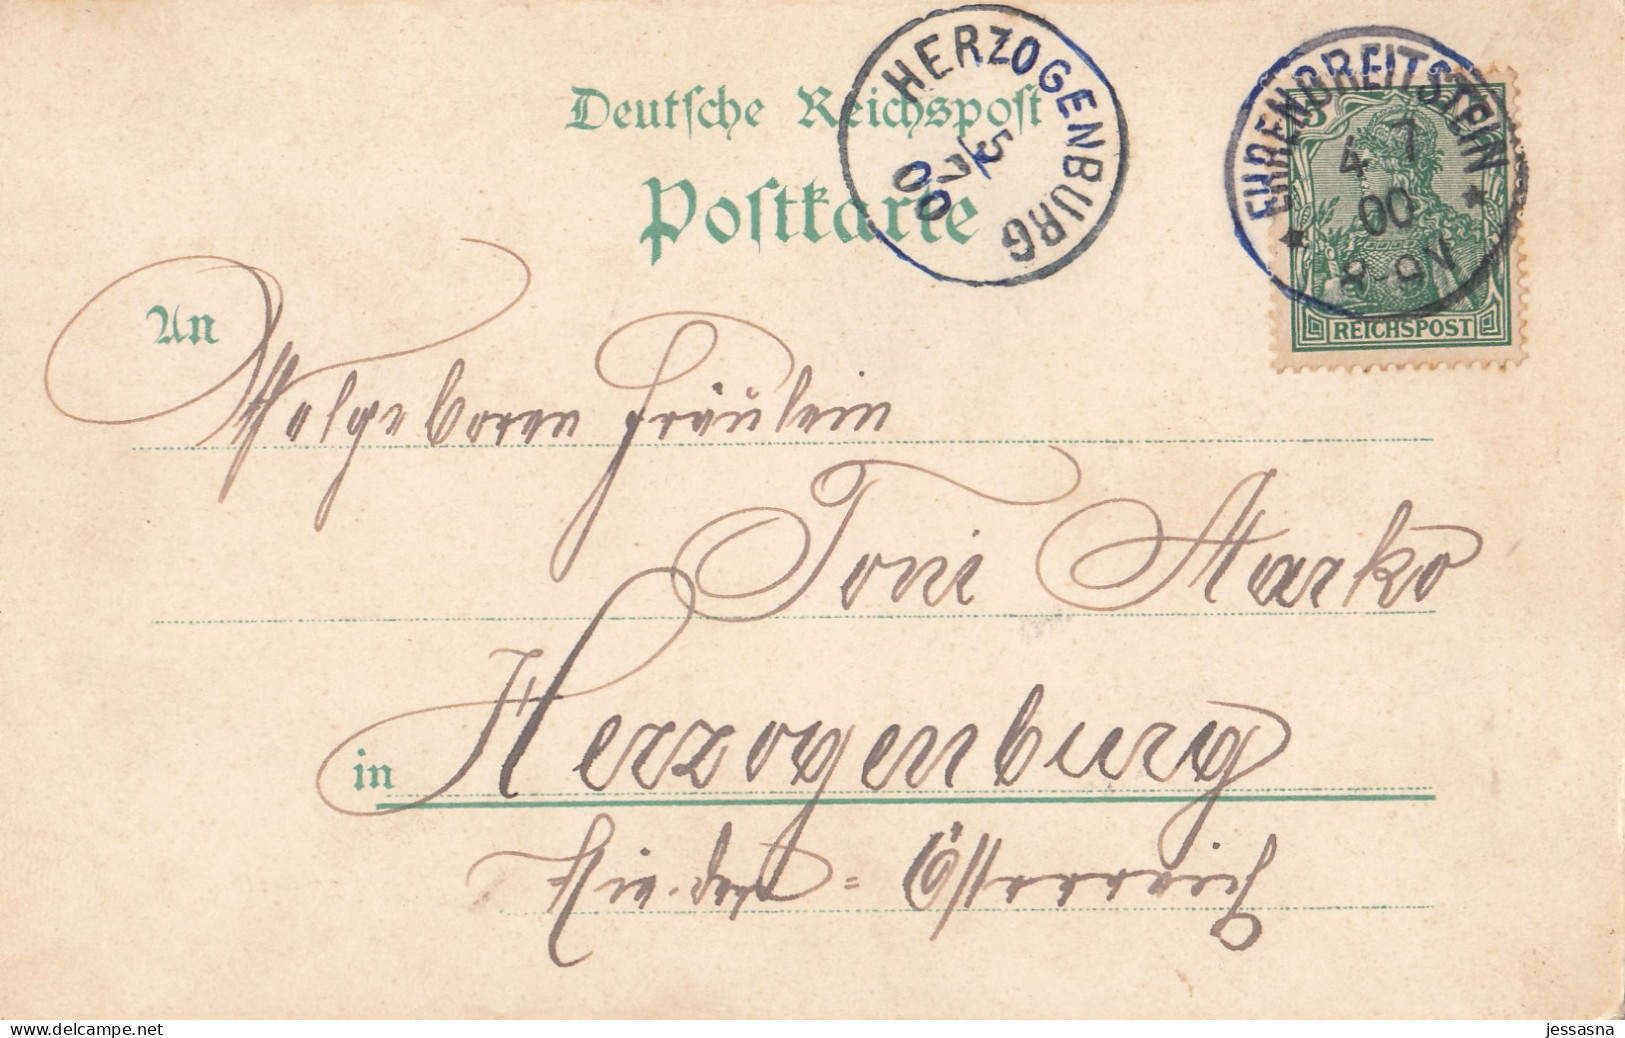 Deutsche Reichspost
Postkarte
HERZOGENBURG
5 7
00
EHRENBREITSTEIN
4 7
00
8-9N
5
REICHSPOST
An
Wolgeboren Fräulein
Toni Starko
in Herzogenburg
Nieder-Österreich
www.delcampe.net
jessasna